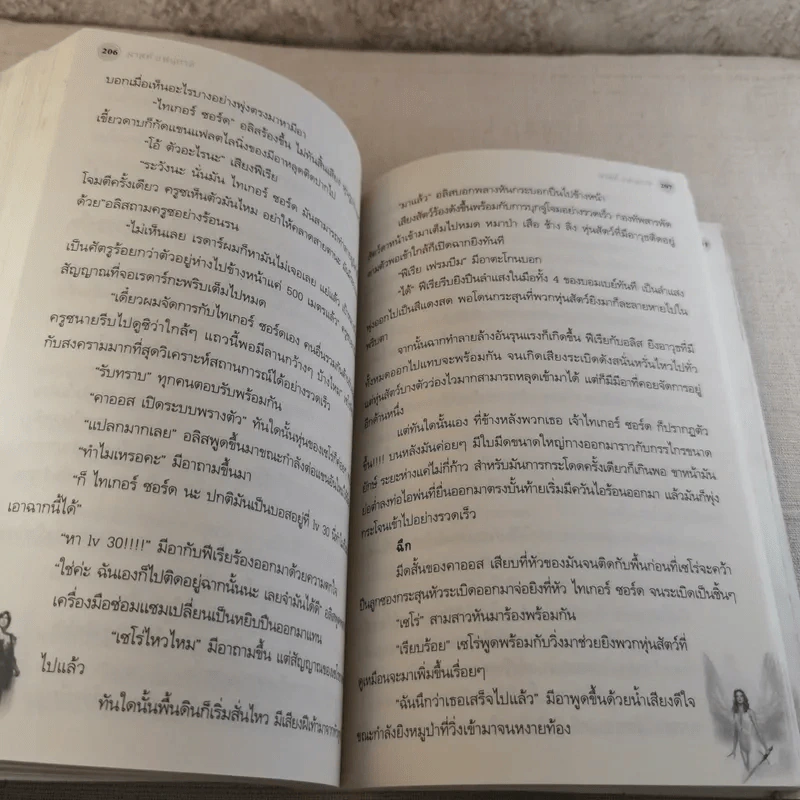 206
บอกเมื่อเห็นอะไรบางอย่างพุ่งตรงมาหามีอา
"ไทเกอร์ ซอร์ด" อลิสร้องขึ้น ไม่ทันสิ้นเสียง
เขี้ยวดาบก็กัดแขนแฟลตไลนิ่งของมีอาหลุดติดปากไป
"โอ้ ตัวอะไรนะ" เสียงฟีเรีย
"ระวังนะ นั่นมัน ไทเกอร์ ซอร์ด มันสามารถ
โจมตีครั้งเดียว ครูซเห็นตัวมันไหม อย่าให้คลาดสายตานะ
ด้วย"อลิสถามครูซอย่างร้อนรน
"ไม่เห็นเลย เรดาร์ผมก็หามันไม่เจอเลย แย่แล้ว
เป็นศัตรูร้อยกว่าตัวอยู่ห่างไปข้างหน้าแค่ 500 เมตรแล้ว"
สัญญาณที่จอเรดาร์กะพริบเต็มไปหมด
"เดี๋ยวผมจัดการกับไทเกอร์ ซอร์ดเอง คนอื่นรวมกัน
ครูซนายรีบไปดูซิว่าใกล้ๆ แถวนี้พอมีลานกว้างๆ บ้างไหม"
กับสงครามมากที่สุดวิเคราะห์สถานการณ์ได้อย่างรวดเร็ว
"รับทราบ" ทุกคนตอบรับพร้อมกัน
"คาออส เปิดระบบพรางตัว" ทันใดนั้นหุ่นของเซโร่ก็
"แปลกมากเลย" อลิสพูดขึ้นมาขณะกำลังต่อแขน
"ทำไมเหรอคะ" มีอาถามขึ้นมา
"ก็ ไทเกอร์ ซอร์ด นะ ปกติมันเป็นบอสอยู่ที่ lv 30
เอาฉากนี้ได้"
"หา lv 30!!!!" มีอากับฟีเรียร้องออกมาด้วยความตกใจ
"ใช่ค่ะ ฉันเองก็ไปติดอยู่ฉากนั้นนะ เลยจำมันได้ดี"
เครื่องมือซ่อมแซมเปลี่ยนเป็นหยิบปืนออกมาแทน
"เซโร่ไหวไหม" มีอาถามขึ้น แต่สัญญาณของ
ไปแล้ว
ทันใดนั้นพื้นดินก็เริ่มสั่นไหว มีเสียงฝีเท้ามาจาก
"มาแล้ว" อลิสบอกพลางหันกระบอกปืนไปข้างหน้า
เสียงสัตว์ร้องดังขึ้นพร้อมกับการบุกจู่โจมอย่างรวดเร็ว กองทัพสารพัด
สัตว์ดาหน้าเข้ามาเต็มไปหมด หมาป่า เสือ ช้าง ลิง หุ่นสัตว์ที่มีอาวุธติดอยู่
ตามตัวพอเข้าใกล้ก็เปิดฉากยิงทันที
"ฟีเรีย เฟรมบีม" มีอาตะโกนบอก
"ได้" ฟีเรียรีบยิงปืนลำแสงในมือทั้ง 4 ของบอมเบย์ทันที เป็นลำแสง
พุ่งออกไปเป็นสีแดงสด พอโดนกระสุนที่พวกหุ่นสัตว์ยิงมาก็ละลายหายไปใน
พริบตา
จากนั้นฉากทำลายล้างอันรุนแรงก็เกิดขึ้น ฟีเรียกับอลิส ยิงอาวุธที่มี
ทั้งหมดออกไปแทบจะพร้อมกัน จนเกิดเสียงระเบิดดังสนั่นหวั่นไหวไปทั่ว
แต่หุ่นสัตว์บางตัวว่องไวมากสามารถหลุดเข้ามาได้ แต่ก็มีมีอาที่คอยจัดการอยู่
อีกด้านหนึ่ง
แต่ทันใดนั้นเอง ที่ข้างหลังพวกเธอ เจ้าไทเกอร์ ซอร์ด ก็ปรากฏตัว
ขึ้น!!!! บนหลังมันค่อยๆ มีใบมีดขนาดใหญ่กางออกมาราวกับกรรไกรขนาด
ยักษ์ ระยะห่างแค่ไม่กี่ก้าว สำหรับมันการกระโดดครั้งเดียวก็เกินพอ ขาหน้ามัน
ย่อต่ำลงท่อไอพ่นที่ยื่นออกมาตรงบั้นท้ายเริ่มมีควันไอร้อนออกมา แล้วมันก็พุ่ง
กระโจนเข้าไปอย่างรวดเร็ว
ฉึก
มีดสั้นของคาออส เสียบที่หัวของมันจนติดกับพื้นก่อนที่เซโร่จะคว้า
ปืนลูกซองกระสุนหัวระเบิดออกมาจ่อยิงที่หัว ไทเกอร์ ซอร์ด จนระเบิดเป็นชิ้นๆ
"เซโร่" สามสาวหันมาร้องพร้อมกัน
"เรียบร้อย" เซโร่พูดพร้อมกับวิ่งมาช่วยยิงพวกหุ่นสัตว์ที่
ดูเหมือนจะมาเพิ่มขึ้นเรื่อยๆ
"ฉันนึกว่าเธอเสร็จไปแล้ว" มีอาพูดขึ้นด้วยน้ำเสียงดีใจ
ขณะกำลังยิงหมูป่าที่วิ่งเข้ามาจนหงายท้อง